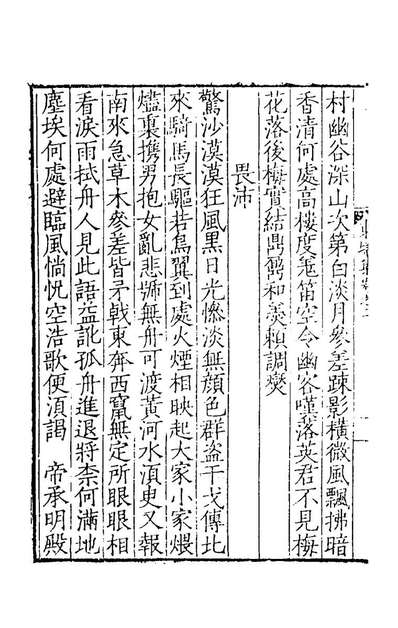 村幽谷深山次第白淡月參差踈影橫微風飄拂暗
香清何處高樓度羗笛空令幽客嘆落英君不見梅
花落後梅實結鼎鼐和羹頼調燮
畏沛
驚沙漠漠狂風黑日光慘淡無顔色群盗干戈傳北
來騎馬長驅若鳥翼到處火煙相映起大家小家煨
燼裏携男抱女亂悲號無舟可渡黃河水湏臾又報
南來急草木參差皆矛戟東奔西竄無定所眼眼相
看淚雨拭舟人見此語益訛孤舟進退將柰何滿地
塵埃何處避臨風惝怳空浩歌便湏謁　帝承明殿